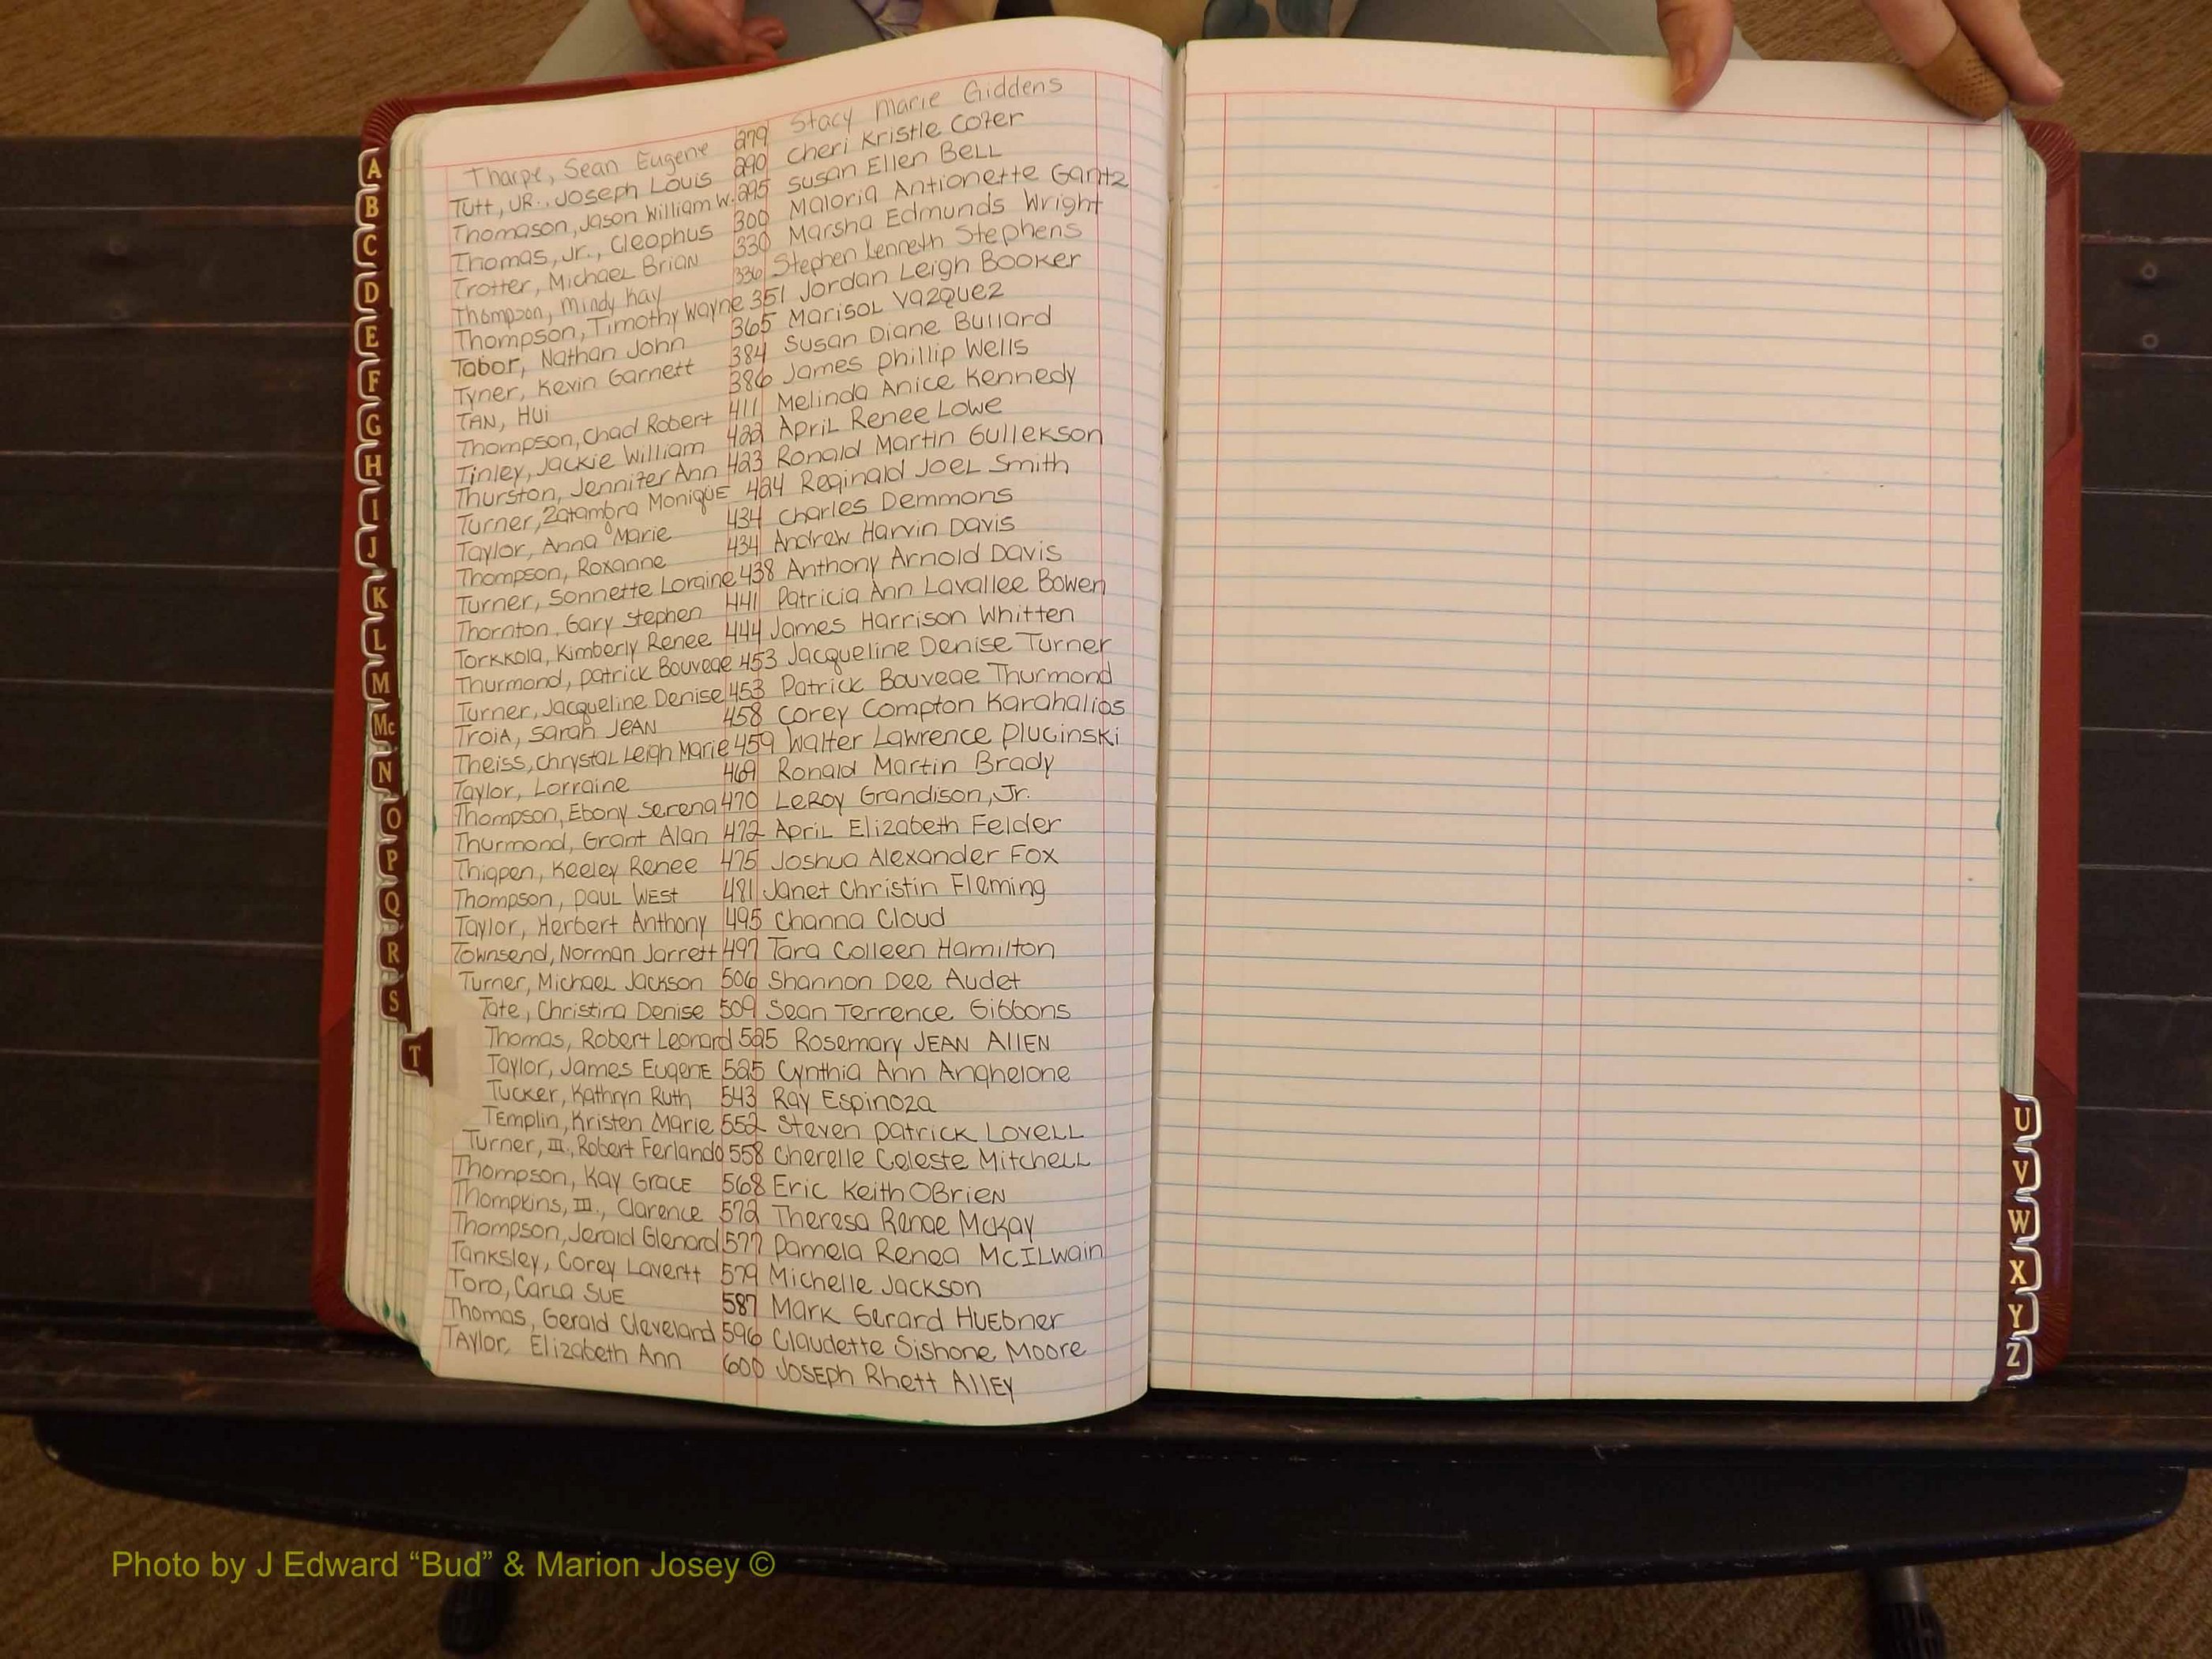 Tharpe, Sean Eugene 279 Stacy Marie Giddens
Tutt, JR., Joseph Louis 290 Cheri Kristle Cofer
Thomason, Jason William W. 295 Susan Ellen Bell
Thomas, Jr., Cleophus 300 Maloria Antionette Gantz
Trotter, Michael Brian 330 Marsha Edmunds Wright
Thompson, Mindy Kay 336 Stephen Kenneth Stephens
Thompson, Timothy Wayne 351 Jordan Leigh Booker
Tabor, Nathan John 365 Marisol Vazquez
Tyner, Kevin Garnett 384 Susan Diane Bullard
TAN, Hui 386 James Phillip Wells
Thompson, Chad Robert 411 Melinda Anice Kennedy
Tinley, Jackie William 422 April Renee Lowe
Thurston, Jennifer Ann 423 Ronald Martin Gullekson
Turner, Zatambra Monique 424 Reginald Joel Smith
Taylor, Anna Marie 434 Charles Demmons
Thompson, Roxanne 434 Andrew Harvin Davis
Turner, Sonnette Loraine 438 Anthony Arnold Davis
Thornton, Gary Stephen 441 Patricia Ann Lavallee Bowen
Torkkola, Kimberly Renee 444 James Harrison Whitten
Thurmond, Patrick Bouveae 453 Jacqueline Denise Turner
Turner, Jacqueline Denise 453 Patrick Bouveae Thurmond
Troia, Sarah Jean 458 Corey Compton Karahalios
Theiss, Chrystal Leigh Marie 459 Walter Lawrence Plucinski
Taylor, Lorraine 469 Ronald Martin Brady
Thompson, Ebony Serena 470 LeRoy Grandison, Jr.
Thurmond, Grant Alan 472 April Elizabeth Felder
Thigpen, Keeley Renee 475 Joshua Alexander Fox
Thompson, Paul West 481 Janet Christin Fleming
Taylor, Herbert Anthony 495 Channa Cloud
Townsend, Norman Jarrett 497 Tara Colleen Hamilton
Turner, Michael Jackson 506 Shannon Dee Audet
Tate, Christina Denise 509 Sean Terrence Gibbons
Thomas, Robert Leonard 525 Rosemary Jean Allen
Taylor, James Eugene 525 Cynthia Ann Anghelone
Tucker, Kathryn Ruth 543 Ray Espinoza
Templin, Kristen Marie 552 Steven Patrick Lovell
Turner, III., Robert Ferlando 558 Cherelle Celeste Mitchell
Thompson, Kay Grace 568 Eric Keith OBrien
Thompkins, III., Clarence 572 Theresa Renae McKay
Thompson, Jerald Glenard 577 Pamela Renea McIlwain
Tanksley, Corey Lavertt 579 Michelle Jackson
Toro, Carla Sue 587 Mark Gerard Huebner
Thomas, Gerald Cleveland 596 Claudette Sishone Moore
Taylor, Elizabeth Ann 600 Joseph Rhett Alley
A
B
C
D
E
F
G
H
I
J
K
L
M
Mc
N
O
P
Q
R
S
T
U
V
W
X
Y
Z
Photo by J Edward “Bud” & Marion Josey ©